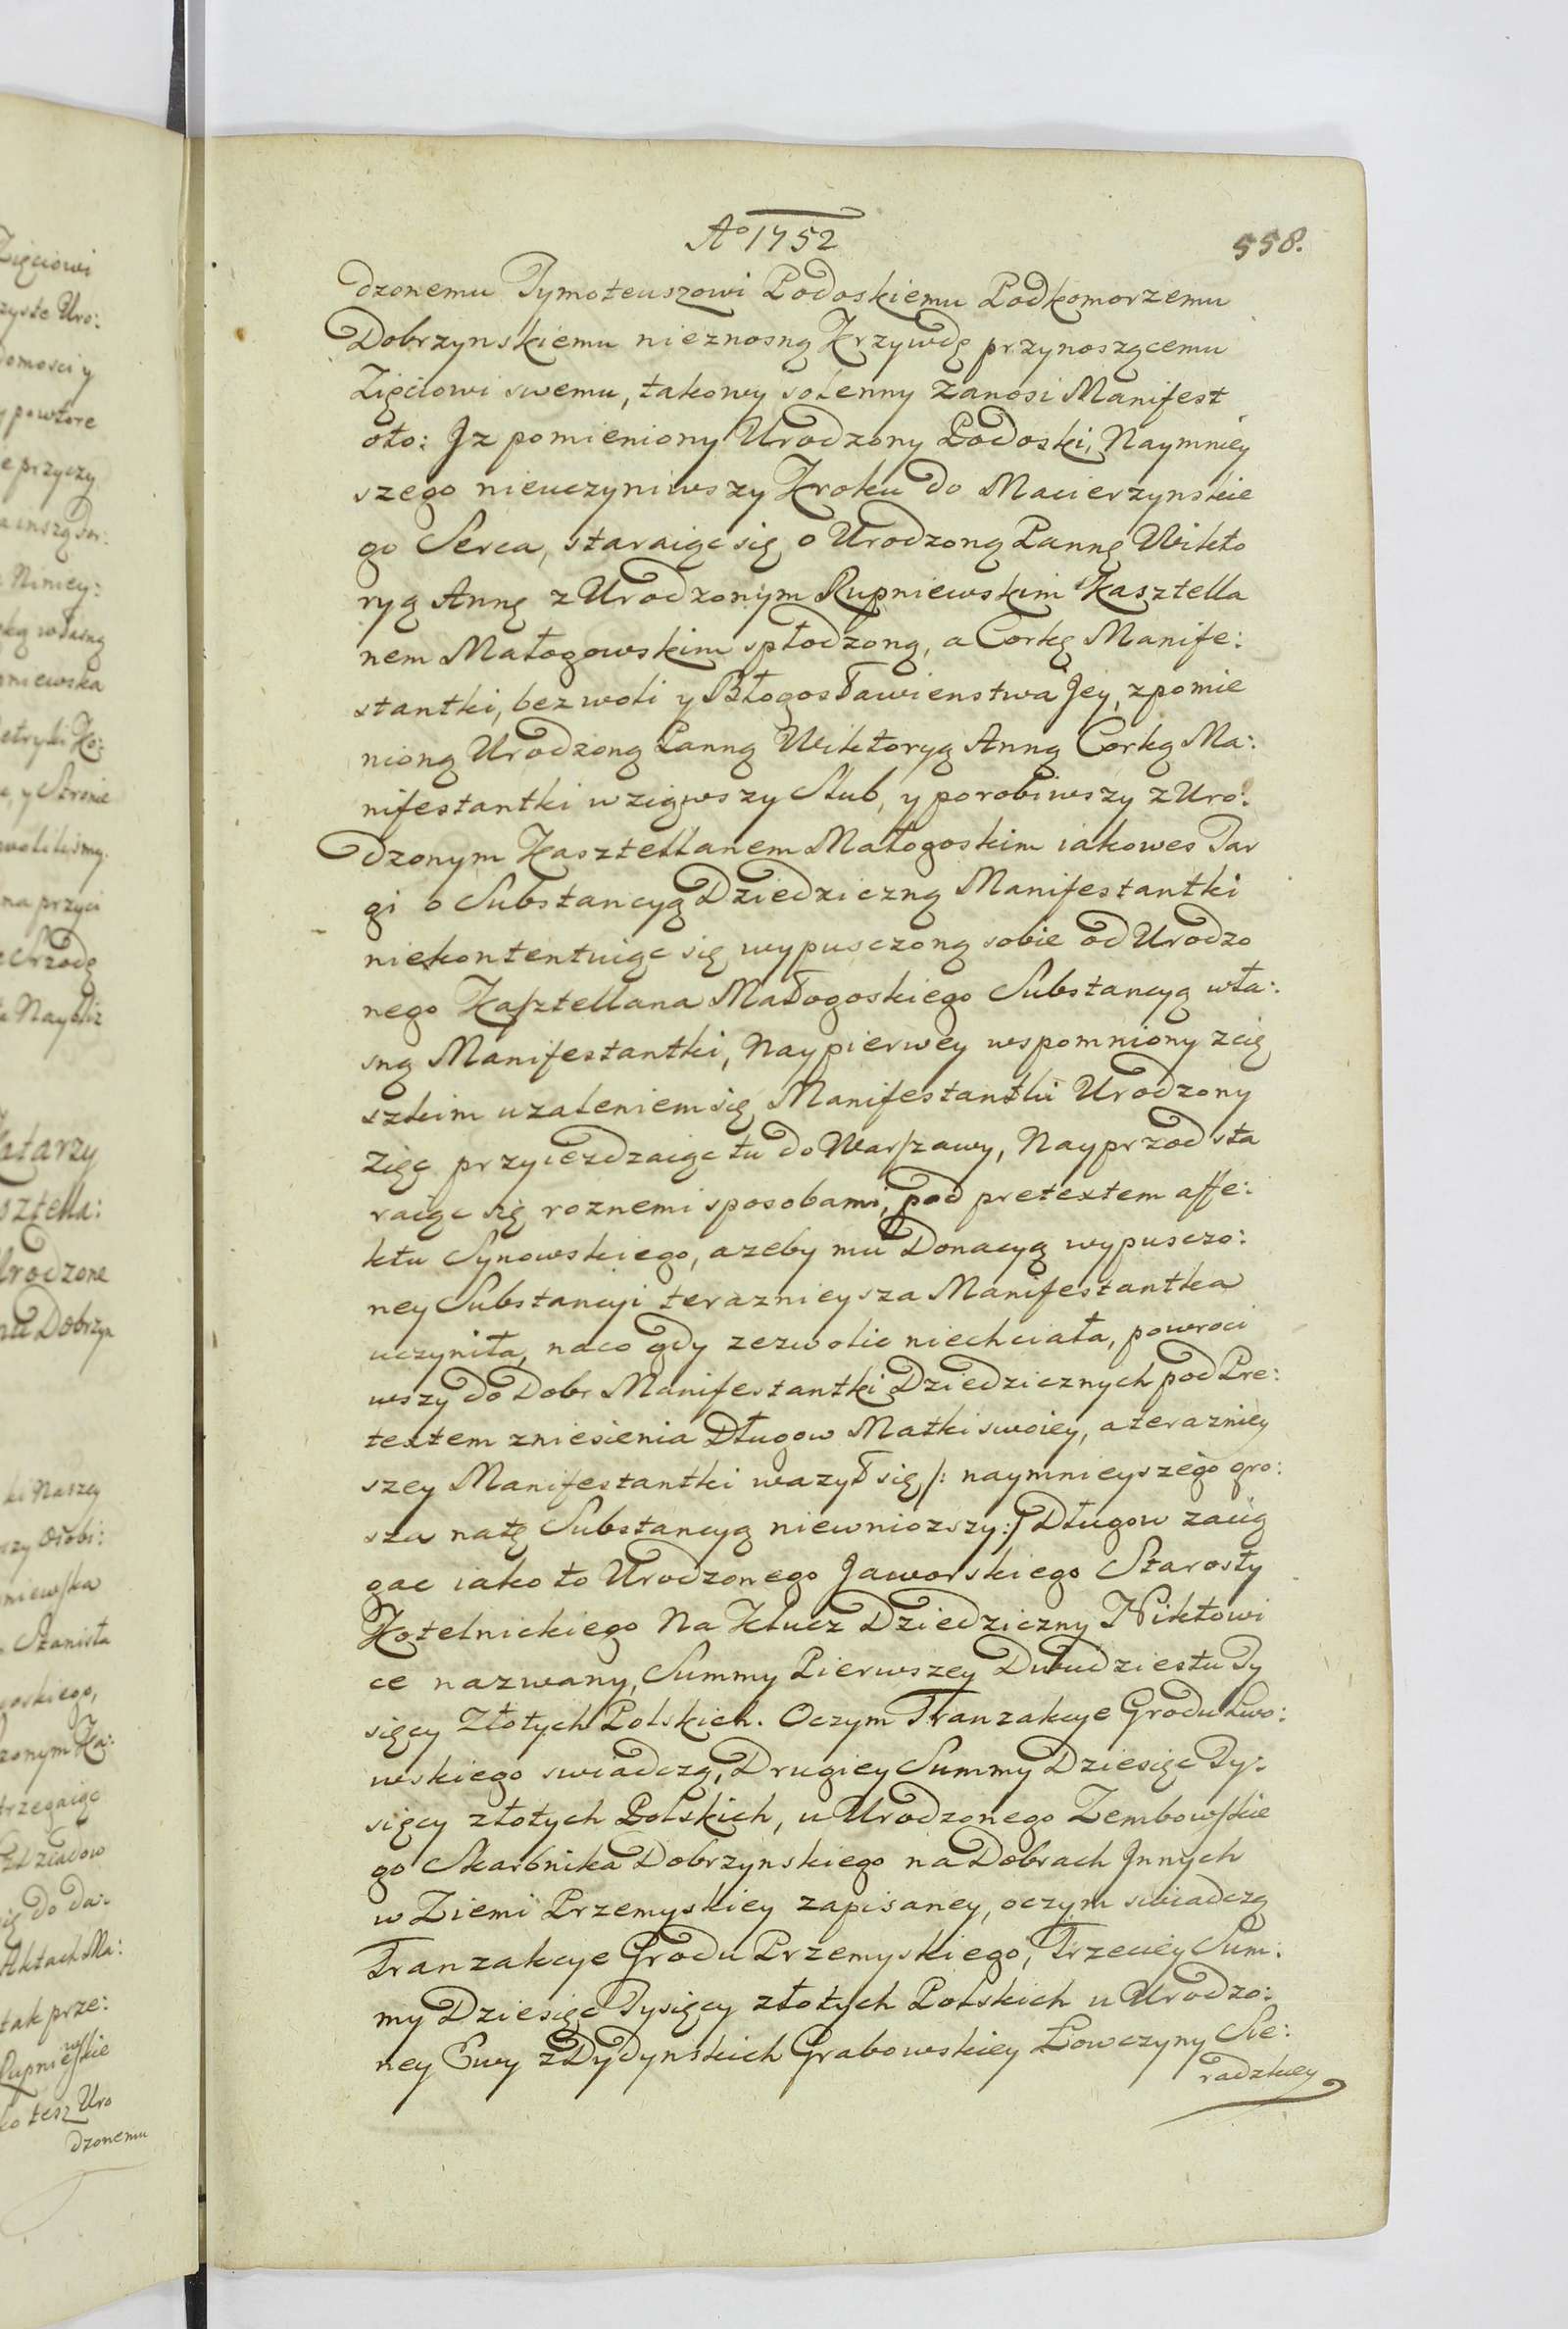 Aº 1752
558.
dzonemu Tymoteuszowi Podoskiemu Podkomorzemu
Dobrzynskiemu nieznosną Krzywdę przynoszącemu
Zięciowi swemu, takowy solenny zanosi Manifest
oto: Jz pomieniony Urodzony Podoski, Naymniey
szego nieuczyniwszy Kroku do Macierzynskie
go Serca, staraiąc się o Urodzoną Pannę Wikto
ryą Annę z Urodzonym Rupniewskim Kasztella
nem Małogowskim spłodzoną, a Corkę Manife:
stantki, bez woli y Błogosławienstwa Jey, z pomie
nioną Urodzoną Panną Wiktoryą Anną Corką Ma:
nifestantki wziąwszy Slub, y porobiwszy z Uro:
dzonym Kasztellanem Małogoskim iakowes Tar
gi o Substancyą Dziedziczną Manifestantki
niekontentuiąc się wypusczoną sobie od Urodzo
nego Kasztellana Małogoskiego Substancyą wła:
sną Manifestantki, Naypierwey wspomniony zcię
szkim uzaleniem się Manifestantki Urodzony
Zięc przyiezdzaiąc tu do Warszawy, Nayprzod sta
raiąc się roznemi sposobami, pod pretextem affe:
ktu Synowskiego, azeby mu Donacyą wypusczo:
ney Substancyi teraznieysza Manifestantka
uczyniła, naco gdy zezwolic niechciała, powroci
wszy do Dobr Manifestantki Dziedzicznych pod Pre:
textem zniesienia Długow Matki swoiey, a terazniey
szey Manifestantki wazył się /: naymnieyszego gro:
sza natę Substancyą niewniozszy :/ Długow zacią
gac iako to Urodzonego Jaworskiego Starosty
Kotelnickiego Na Klucz Dziedziczny Niktowi
ce nazwany, Summy Pierwszey Dwudziestu Ty
sięcy Złotych Polskich. Oczym Tranzakcye Grodu Lwo:
wskiego swiadczą, Drugiey Summy Dziesięc Ty:
sięcy złotych Polskich, u Urodzonego Zembowskie
go Skarbnika Dobrzynskiego na Dobrach Jnnych
w Ziemi Przemyskiey zapisaney, oczym swiadczą
Tranzakcye Grodu Przemyskiego, Trzeciey Sum:
my Dziesięc Tysięcy złotych Polskich u Urodzo:
ney Ewy z Dydynskich Grabowskiey Łowczyny Sie:
radzkiey